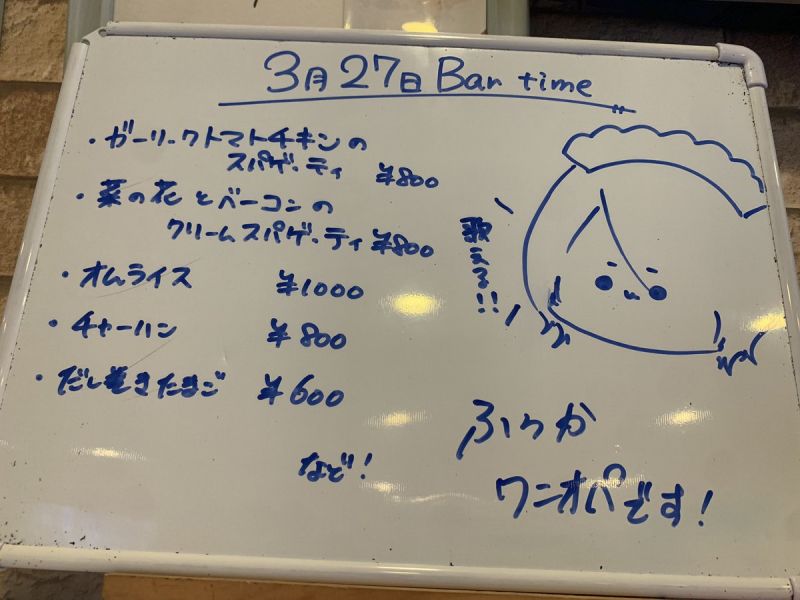 3月27日 Bar time
・ガーリックトマトチキンの
スパゲッティ ¥800
・菜の花とベーコンの
クリームスパゲッティ ¥800
・オムライス ¥1000
・チャーハン ¥800
・だし巻きたまご ¥600
など!
歌える!!
ふうか
ワンオペです!